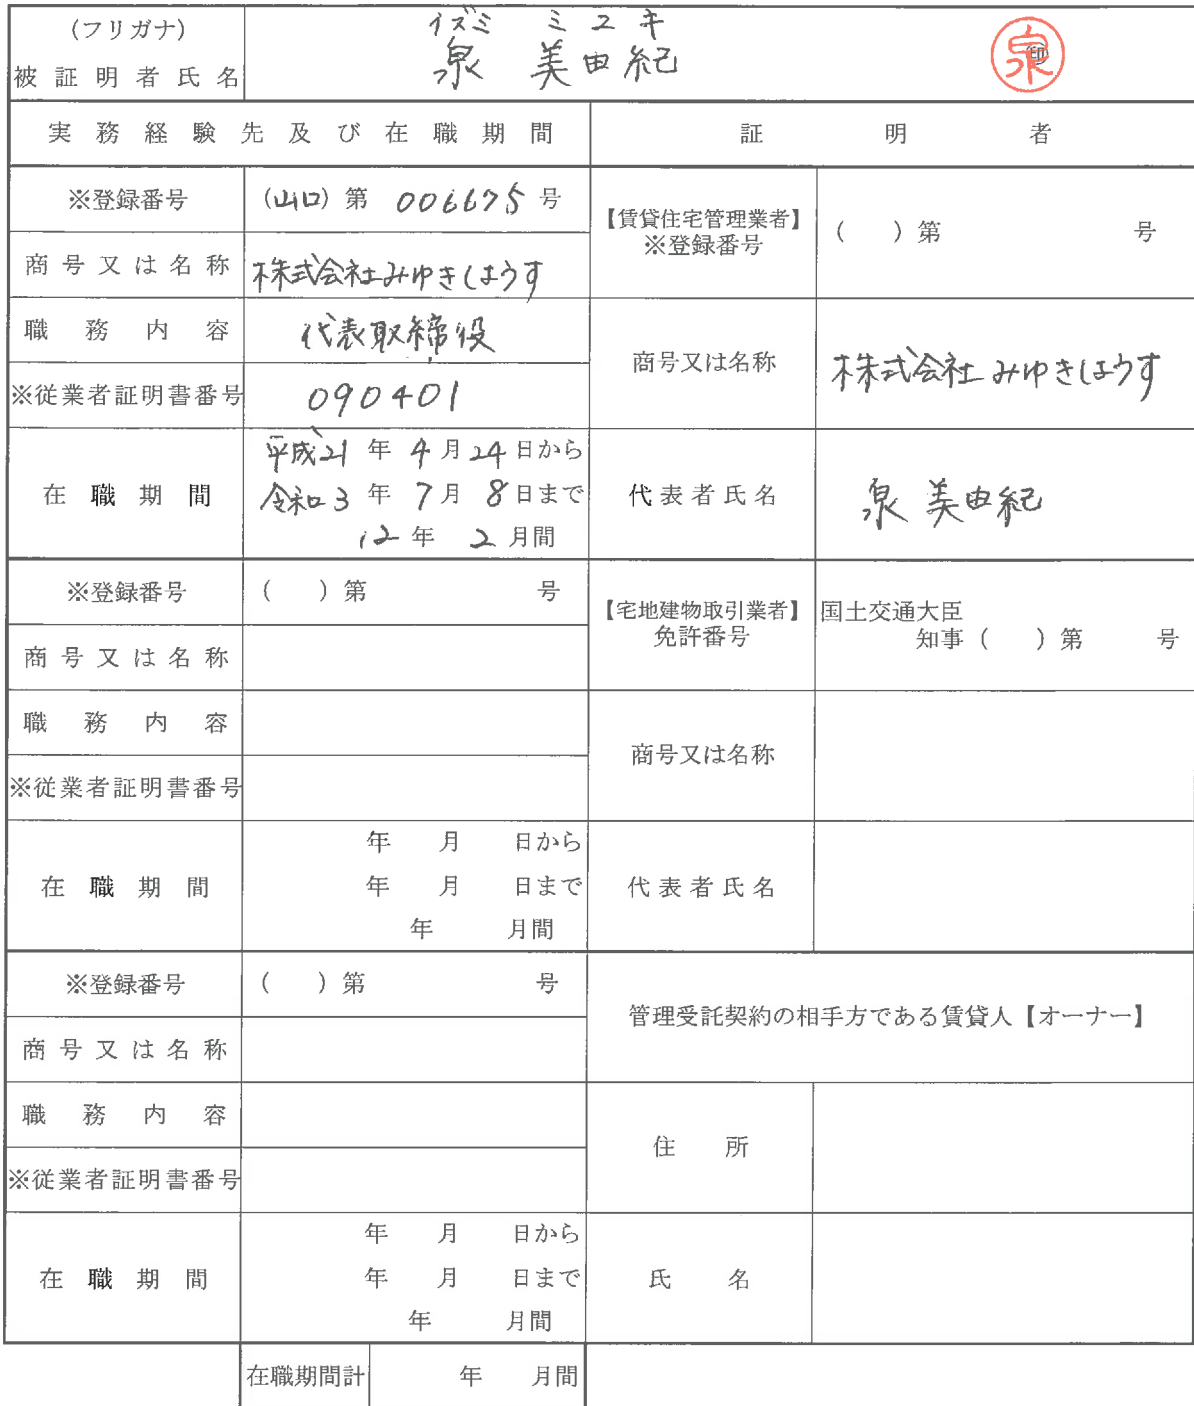 (フリガナ) イズミ ミユキ
被証明者氏名 泉 美由紀 ㊞ 泉
実務経験先及び在職期間 証明者
※登録番号 (山口) 第 006675 号
【賃貸住宅管理業者】
※登録番号 ( ) 第 号
商号又は名称 株式会社みゆきはうす
職務内容 代表取締役
商号又は名称 株式会社みゆきはうす
※従業者証明書番号 090401
在職期間
平成21年4月24日から
令和3年7月8日まで
12年2月間
代表者氏名 泉 美由紀
※登録番号 ( ) 第 号
【宅地建物取引業者】
免許番号
国土交通大臣
知事 ( ) 第 号
商号又は名称
職務内容
商号又は名称
※従業者証明書番号
在職期間
年 月 日から
年 月 日まで
年 月間
代表者氏名
※登録番号 ( ) 第 号
管理受託契約の相手方である賃貸人【オーナー】
商号又は名称
職務内容
住所
※従業者証明書番号
在職期間
年 月 日から
年 月 日まで
年 月間
氏名
在職期間計 年 月間